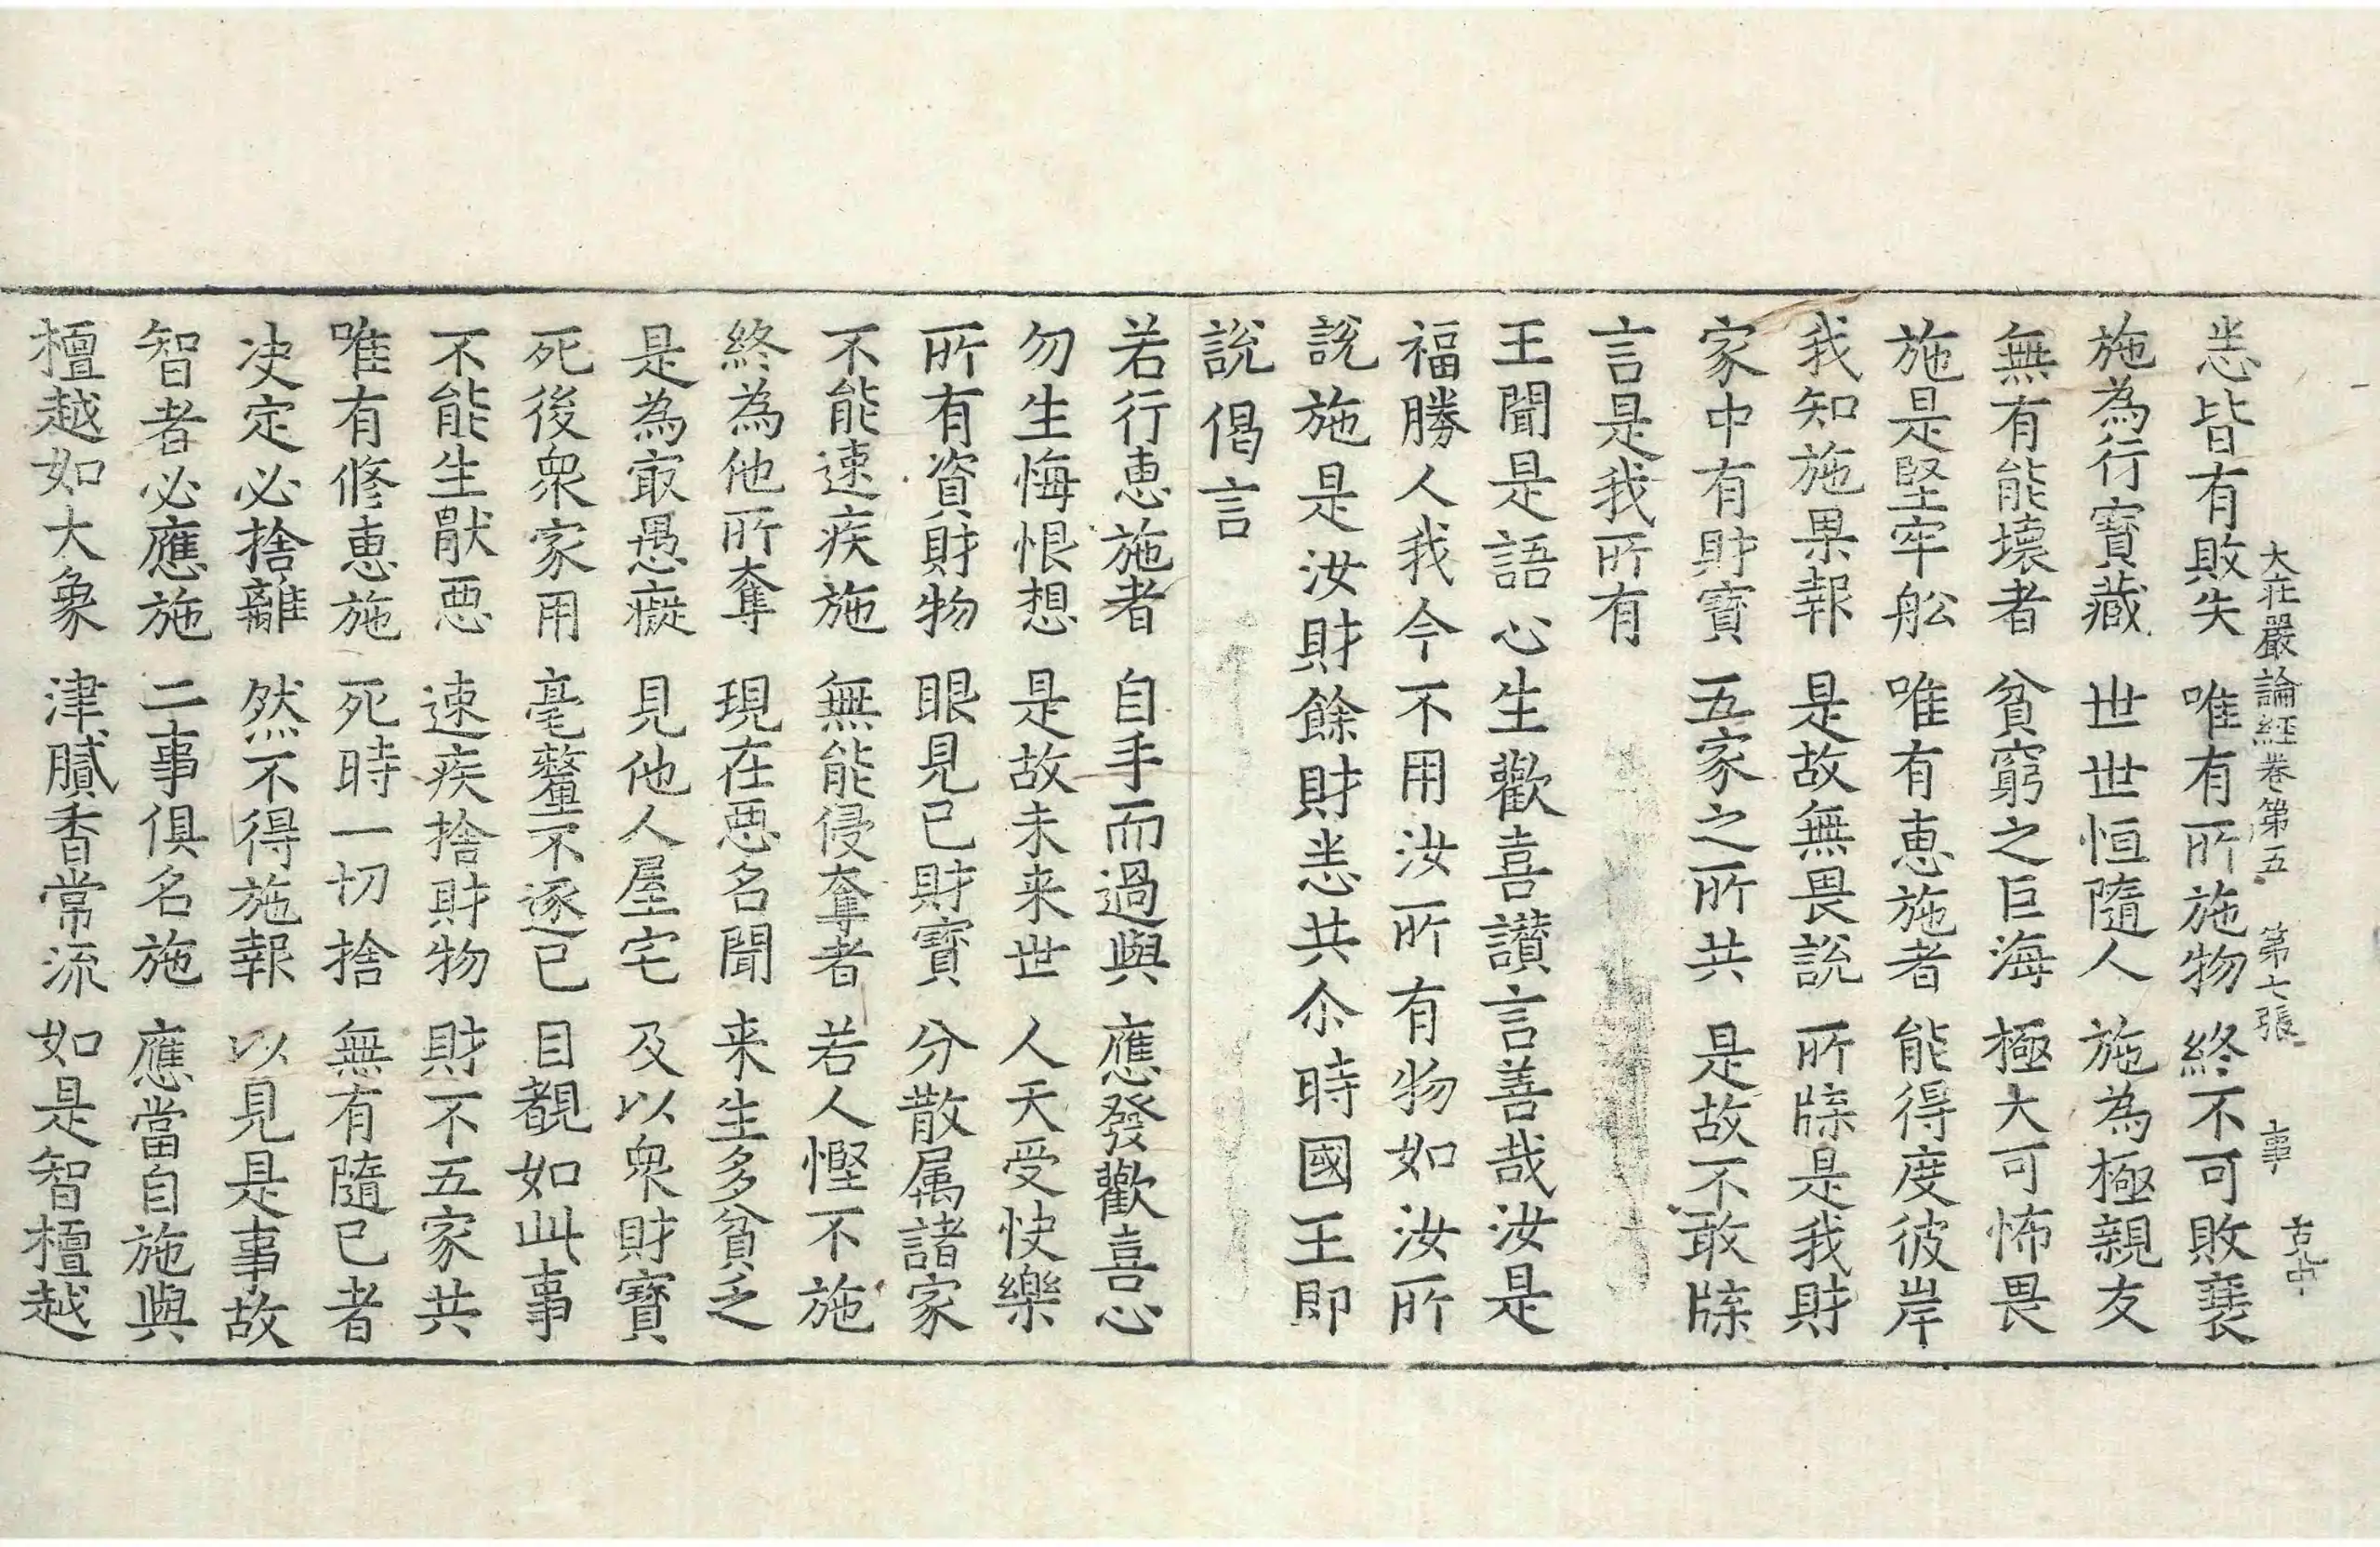 大莊嚴論經卷第五　第七張　事
悉皆有敗失　唯有所施物　終不可敗衰
施為行寶藏　世世恒隨人　施為極親友
無有能壞者　貧窮之巨海　極大可怖畏
施是堅牢舩　唯有惠施者　能得度彼岸
我知施果報　是故無畏說　所牒是我財
家中有財寶　五家之所共　是故不敢牒
言是我所有
王聞是語心生歡喜讚言善哉汝是
福勝人我今不用汝所有物如汝所
說施是汝財餘財悉共尒時國王即
說偈言
若行惠施者　自手而過與　應發歡喜心
勿生悔恨想　是故未来世　人天受快樂
所有資財物　眼見己財寶　分散属諸家
不能速疾施　無能侵奪者　若人慳不施
終為他所奪　現在惡名聞　来生多貧乏
是為㝡愚癡　見他人屋宅　及以衆財寶
死後衆家用　毫釐不逐已　目覩如此事
不能生猒惡　速疾捨財物　財不五家共
唯有修惠施　死時一切捨　無有隨已者
决定必捨離　然不得施報　以見是事故
智者必應施　二事俱名施　應當自施與
檀越如大象　津膩香常流　如是智檀越